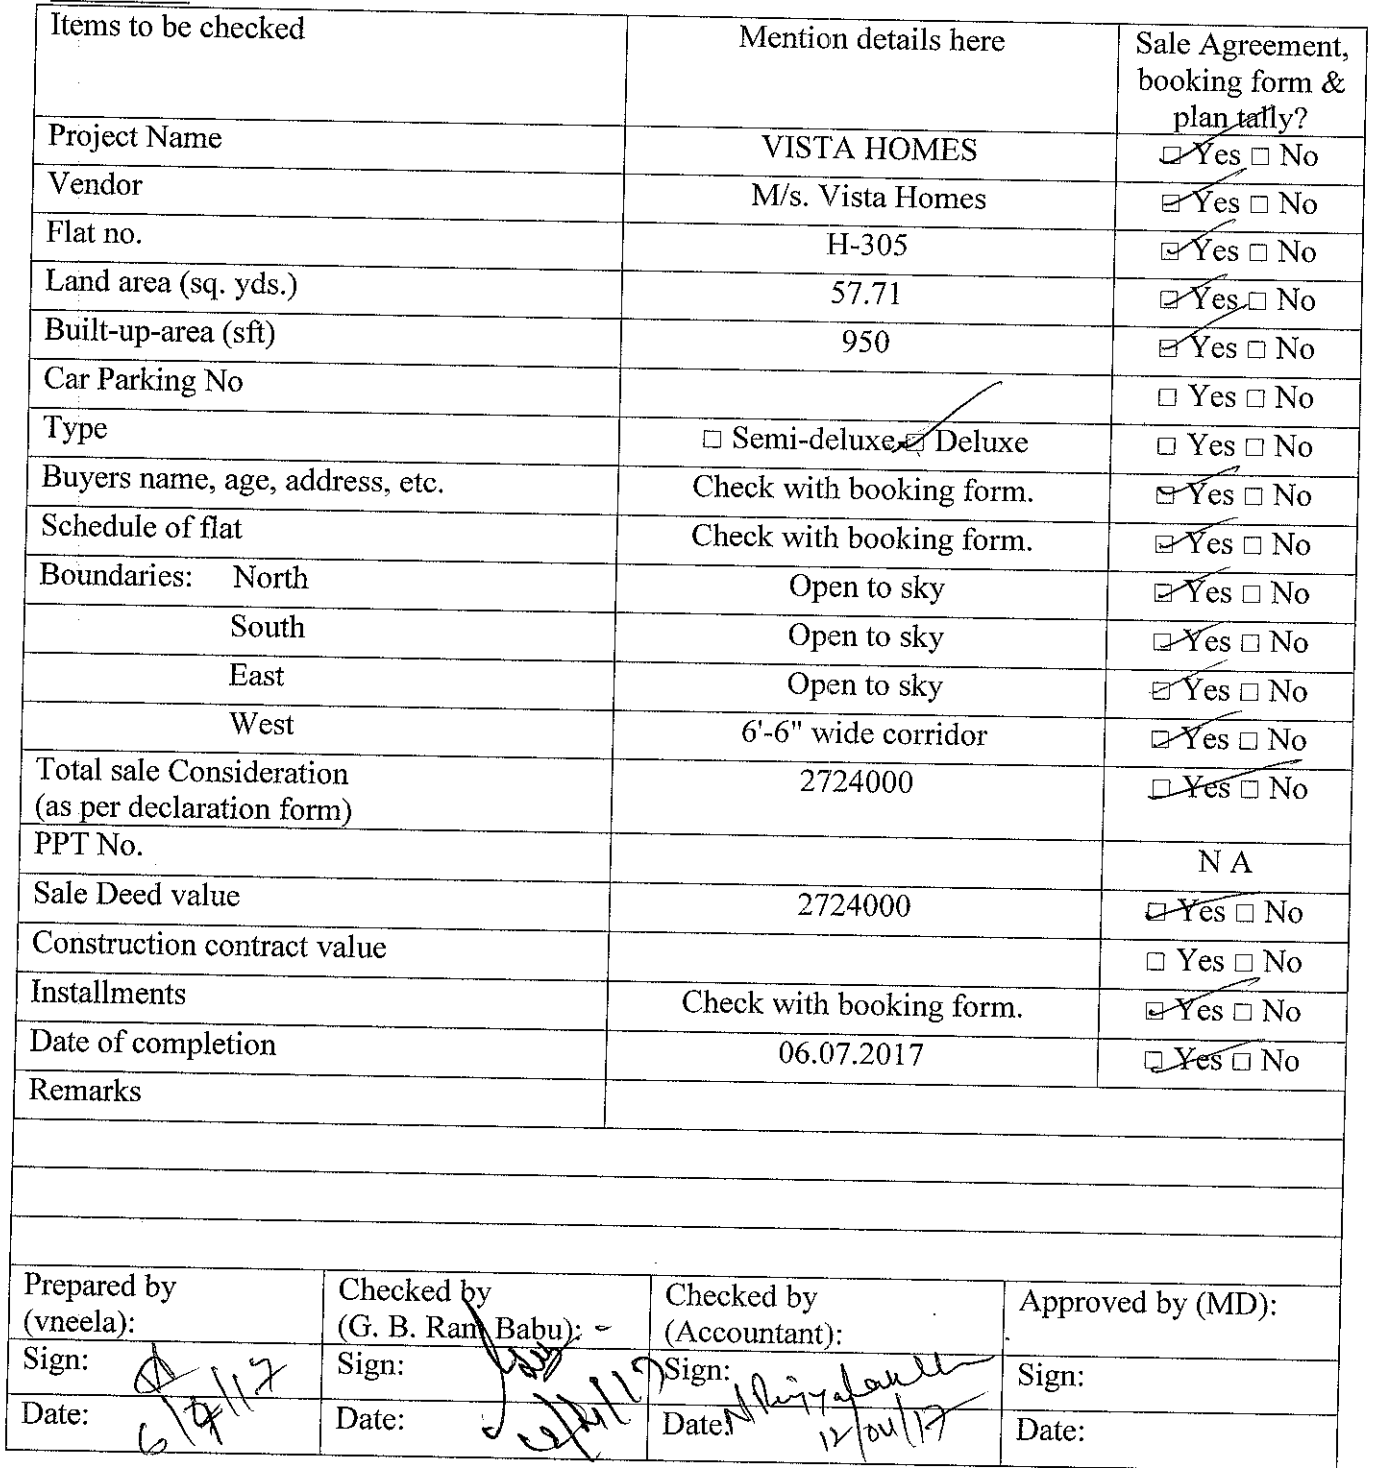 Items to be checked
Mention details here
Sale Agreement,
booking form &
plan tally?
Project Name
VISTA HOMES
☑ Yes □ No
Vendor
M/s. Vista Homes
☑ Yes □ No
Flat no.
H-305
☑ Yes □ No
Land area (sq. yds.)
57.71
☑ Yes □ No
Built-up-area (sft)
950
☑ Yes □ No
Car Parking No
□ Yes □ No
Type
□ Semi-deluxe ☑ Deluxe
□ Yes □ No
Buyers name, age, address, etc.
Check with booking form.
☑ Yes □ No
Schedule of flat
Check with booking form.
☑ Yes □ No
Boundaries: North
Open to sky
☑ Yes □ No
South
Open to sky
☑ Yes □ No
East
Open to sky
☑ Yes □ No
West
6'-6" wide corridor
☑ Yes □ No
Total sale Consideration
(as per declaration form)
2724000
☑ Yes □ No
PPT No.
N A
Sale Deed value
2724000
☑ Yes □ No
Construction contract value
□ Yes □ No
Installments
Check with booking form.
☑ Yes □ No
Date of completion
06.07.2017
☑ Yes □ No
Remarks
Prepared by
(vneela):
Checked by
(G. B. Ram Babu): -
Checked by
(Accountant):
Approved by (MD):
Sign:
Sign:
Sign:
Sign:
Date:
Date:
Date: 12/04/17
Date: